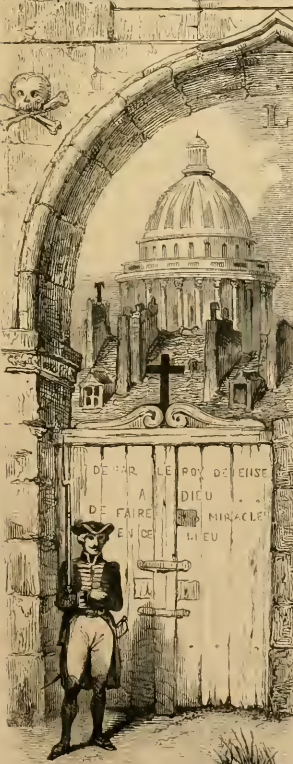 L
DE PAR LE ROY DEFENSE
A DIEU
DE FAIRE MIRACLE
EN CE LIEU